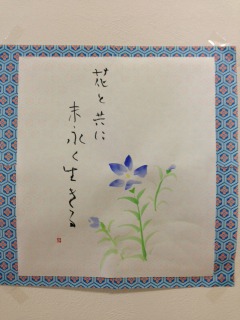 花と共に
末永く生きる